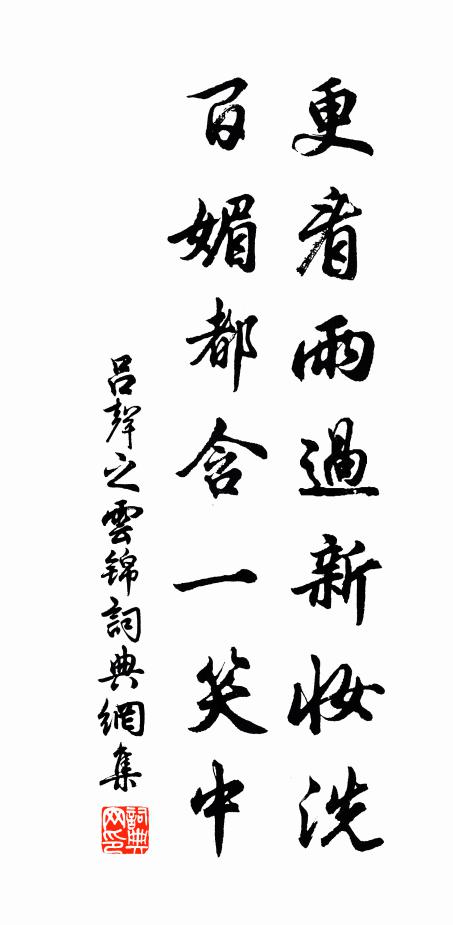 更看雨過新妝洗
百媚都含一笑中
呂聲之雲錦詞典網集
詞典网印